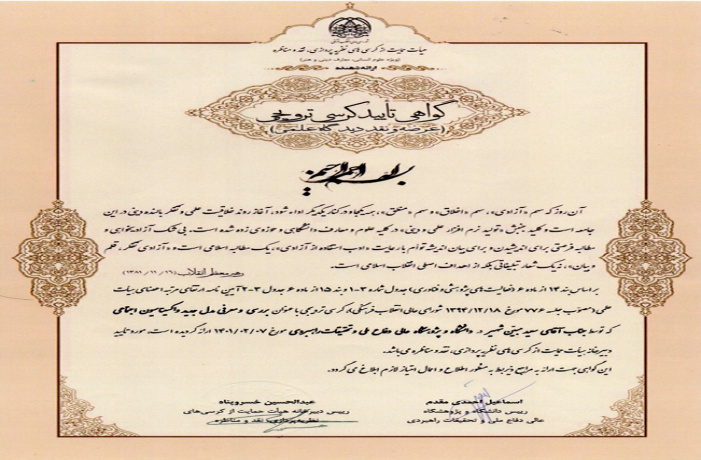 هیات حمایت از کرسی های نظریه پردازی، نقد و مناظره
(ویژه علوم انسانی، معارف دینی و هنر)
ارائه دهنده
گواهی تأیید کرسی ترویجی
(عرضه و نقد دیدگاه علمی)
بسم الله الرحمن الرحیم
آن روز که سهم «آزادی»، سهم «اخلاق» و سهم «منطق»، همه یکجا و در کنار یکدیگر اداء شود، آغاز روند خلاقیت علمی و تفکر بالنده دینی در این
جامعه است و کلید جنبش «تولید نرم افزار علمی و دینی» در کلیه علوم و معارف دانشگاهی و حوزوی زده شده است. بی شک آزادیخواهی و
مطالبه فرصتی برای اندیشیدن و برای بیان اندیشه توأم با رعایت «ادب استفاده از آزادی»، یک مطالبه اسلامی است و «آزادی تفکر، قلم
و بیان»، نه یک شعار تبلیغاتی بلکه از اهداف اصلی انقلاب اسلامی است.
رهبر معظم انقلاب (۱۳۸۱/۱۱/۱۶)
براساس بند ۱۴ از ماده ۶ (فعالیت های پژوهشی و فناوری) جدول شماره ۳-۱ و بند ۱۵ از ماده ۶ جدول ۳-۲ آیین نامه ارتقای مرتبه اعضای هیات
علمی (مصوب جلسه ۷۷۶ مورخ ۱۳۹۴/۱۲/۱۸ شورای عالی انقلاب فرهنگی)، کرسی ترویجی با عنوان بررسی و معرفی مدل جدید واکسیناسیون اجتماعی
که توسط جناب آقای سید مجتبی شهیر در دانشگاه و پژوهشگاه عالی دفاع ملی و تحقیقات راهبردی مورخ ۱۴۰۱/۰۲/۰۷ ارائه گردیده است، مورد تایید
دبیرخانه هیات حمایت از کرسی های نظریه پردازی، نقد و مناظره می باشد.
این گواهی جهت ارائه به مراجع ذیربط به منظور اطلاع و اعمال امتیاز لازم ابلاغ می گردد.
اسماعیل احمدی مقدم
رییس دانشگاه و پژوهشگاه
عالی دفاع ملی و تحقیقات راهبردی
عبدالحسین خسروپناه
رییس دبیرخانه هیأت حمایت از کرسی‌های
نظریه‌پردازی، نقد و مناظره